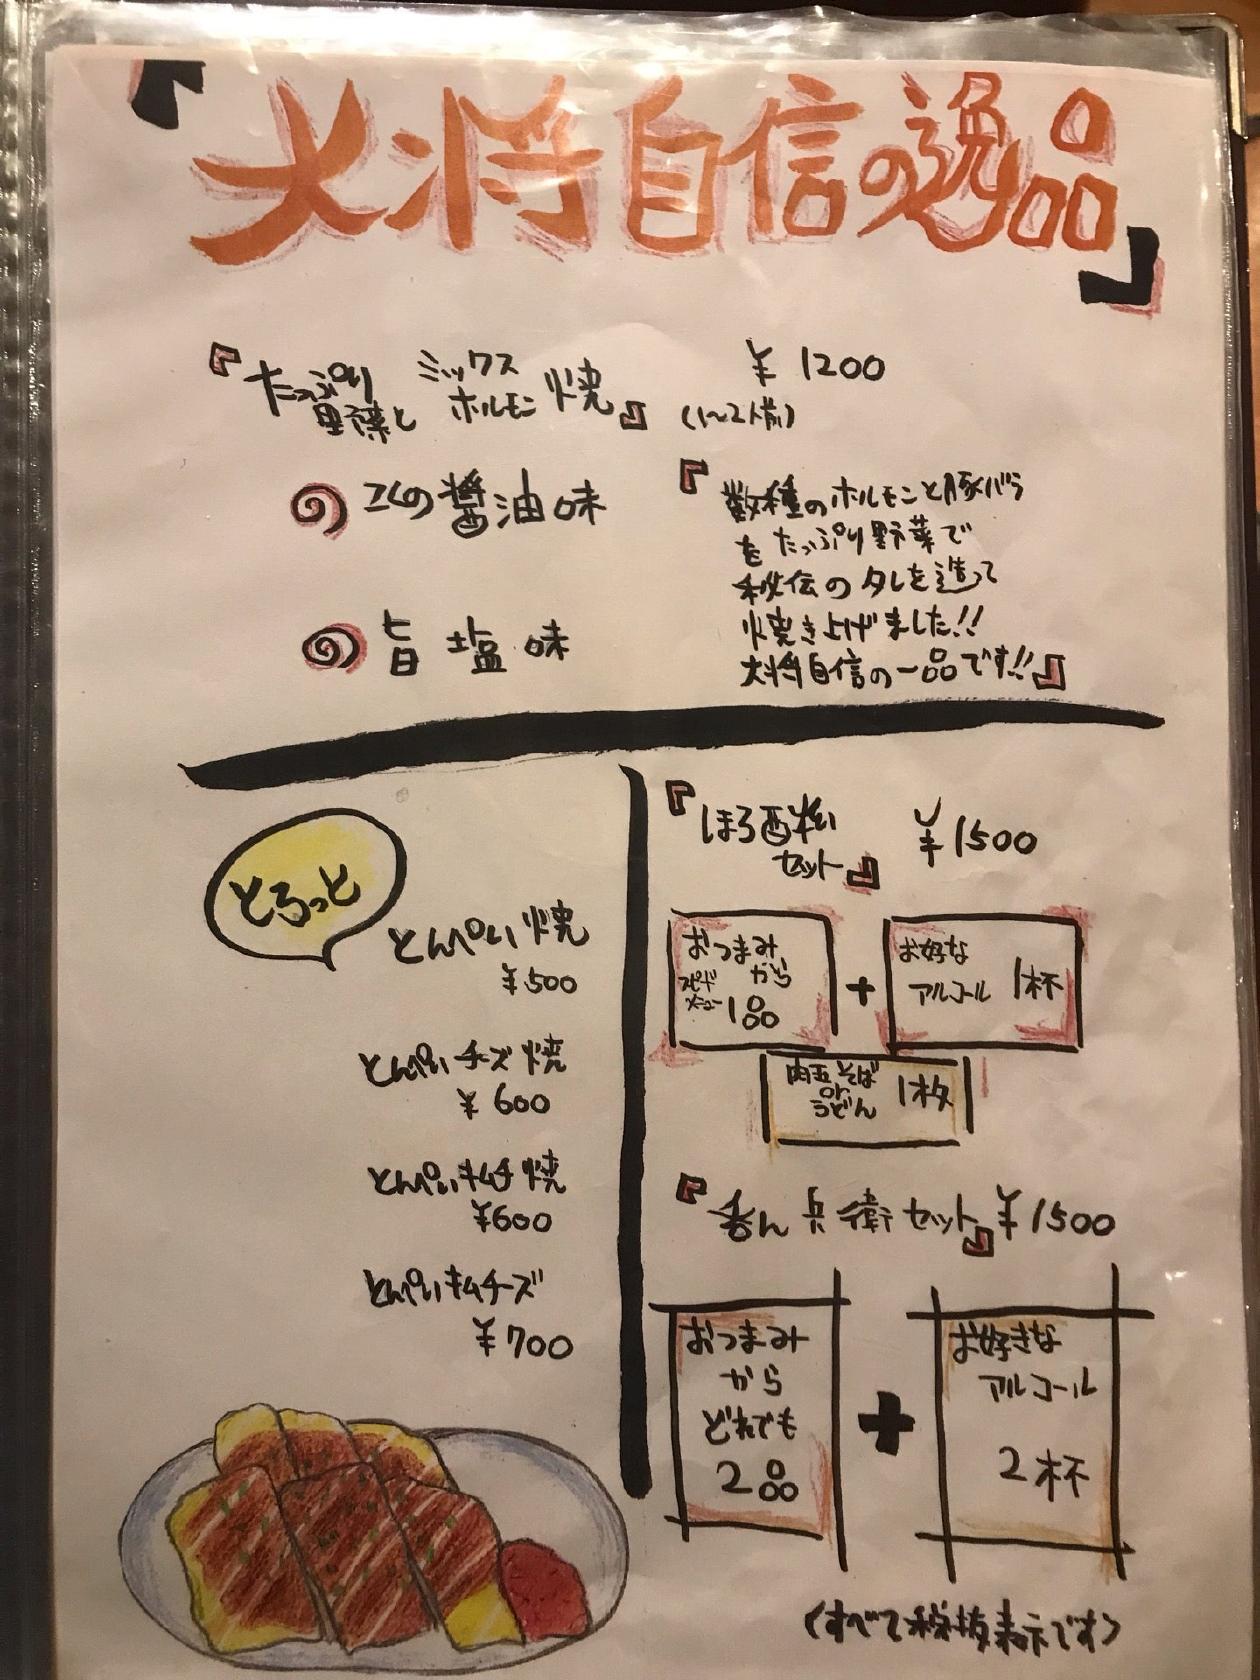 『大将自信の逸品』
『たっぷり野菜とミックスホルモン焼』 ¥1200
(1〜2人前)
コクの醤油味
旨塩味
『数種のホルモンと豚バラ
をたっぷり野菜で
秘伝のタレを造って
焼き上げました!!
大将自信の一品です!!』
とろっと
とんぺい焼
¥500
とんぺいチーズ焼
¥600
とんぺいキムチ焼
¥600
とんぺいキムチーズ
¥700
『ほろ酔い
セット』 ¥1500
おつまみ
スピードメニューから
1品
+
お好な
アルコール 1杯
肉玉そば
or
うどん 1枚
『呑ん兵衛セット』¥1500
おつまみ
から
どれでも
2品
+
お好きな
アルコール
2杯
(すべて税抜表示です)